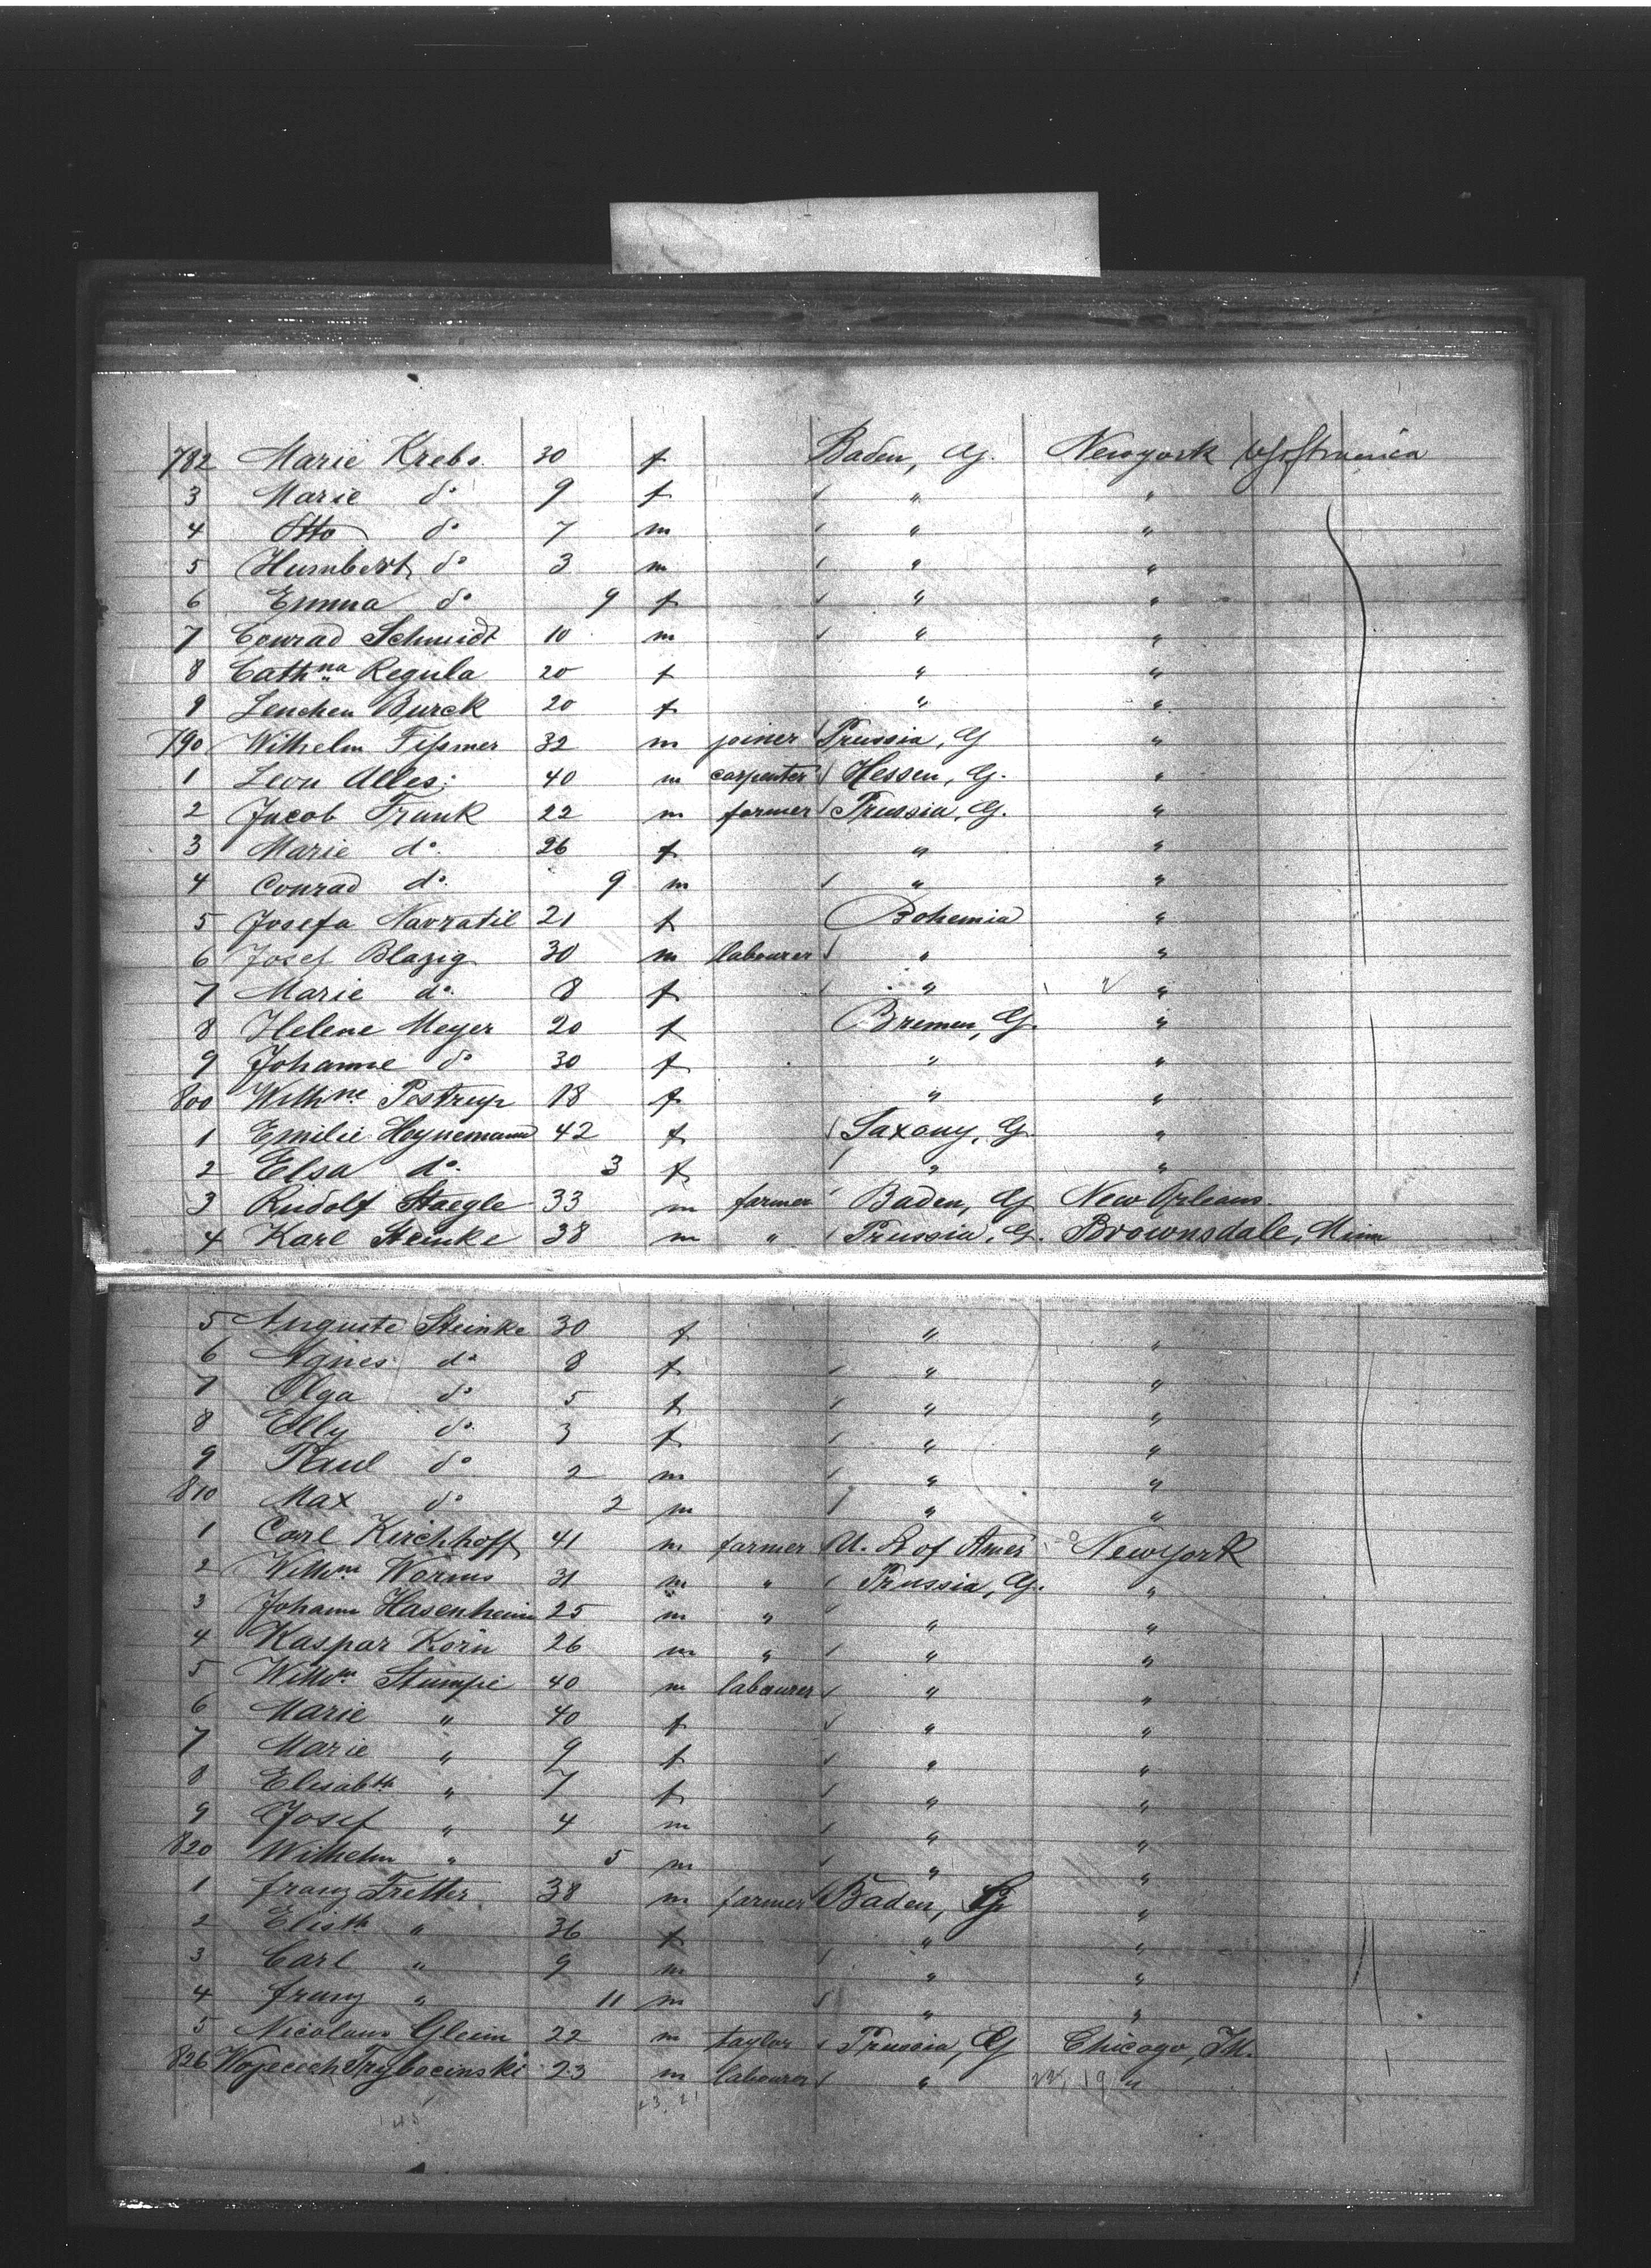 782 Marie Krebs 30 f Baden, G. Newyork
3 Marie do 9 f " "
4 Otto do 7 m " "
5 Humbert do 3 m " "
6 Emma do 9 f " "
7 Conrad Schmidt 10 m " "
8 Cathna Regula 20 f " "
9 Lenchen Burck 20 f " "
790 Wilhelm Tißmer 32 m joiner Prussia, G "
1 Leon Alles 40 m carpenter Hessen, G. "
2 Jacob Frank 22 m farmer Prussia, G. "
3 Marie do. 26 f " "
4 Conrad do. 9 m " "
5 Josefa Navratil 21 f Bohemia "
6 Josef Blazig 30 m labourer " "
7 Marie do. 8 f " "
8 Helene Meyer 20 f Bremen, G. "
9 Johanne do 30 f " "
800 Wilhne Pestrup 18 f " "
1 Emilie Heynemann 42 f Saxony, G. "
2 Elsa do. 3 f " "
3 Rudolf Staegle 33 m farmer Baden, G New Orleans
4 Karl Steinke 38 m " Prussia, G. Brownsdale, Minn
5 Auguste Steinke 30 f " "
6 Agnes do 8 f " "
7 Olga do 5 f " "
8 Elly do. 3 f " "
9 Paul do 2 m " "
810 Max do 2 m " "
1 Carl Kirchhoff 41 m farmer U. S of Amer NewYork
2 Wilhm Worms 31 m " Prussia, G. "
3 Johann Hasenheim 25 m " " "
4 Kaspar Korn 26 m " " "
5 Wilhm Stumpe 40 m labourer " "
6 Marie " 40 f " "
7 Marie " 9 f " "
8 Elisabth " 7 f " "
9 Josef " 4 m " "
820 Wilhelm " 5 m " "
1 Franz Tretter 38 m farmer Baden, G "
2 Elisth " 36 f " "
3 Carl " 9 m " "
4 Franz " 11 m " "
5 Nicolaus Gleim 22 m taylor Prussia, G Chicago, Ill.
826 Wojciech Trybocinski 23 m labourer " "